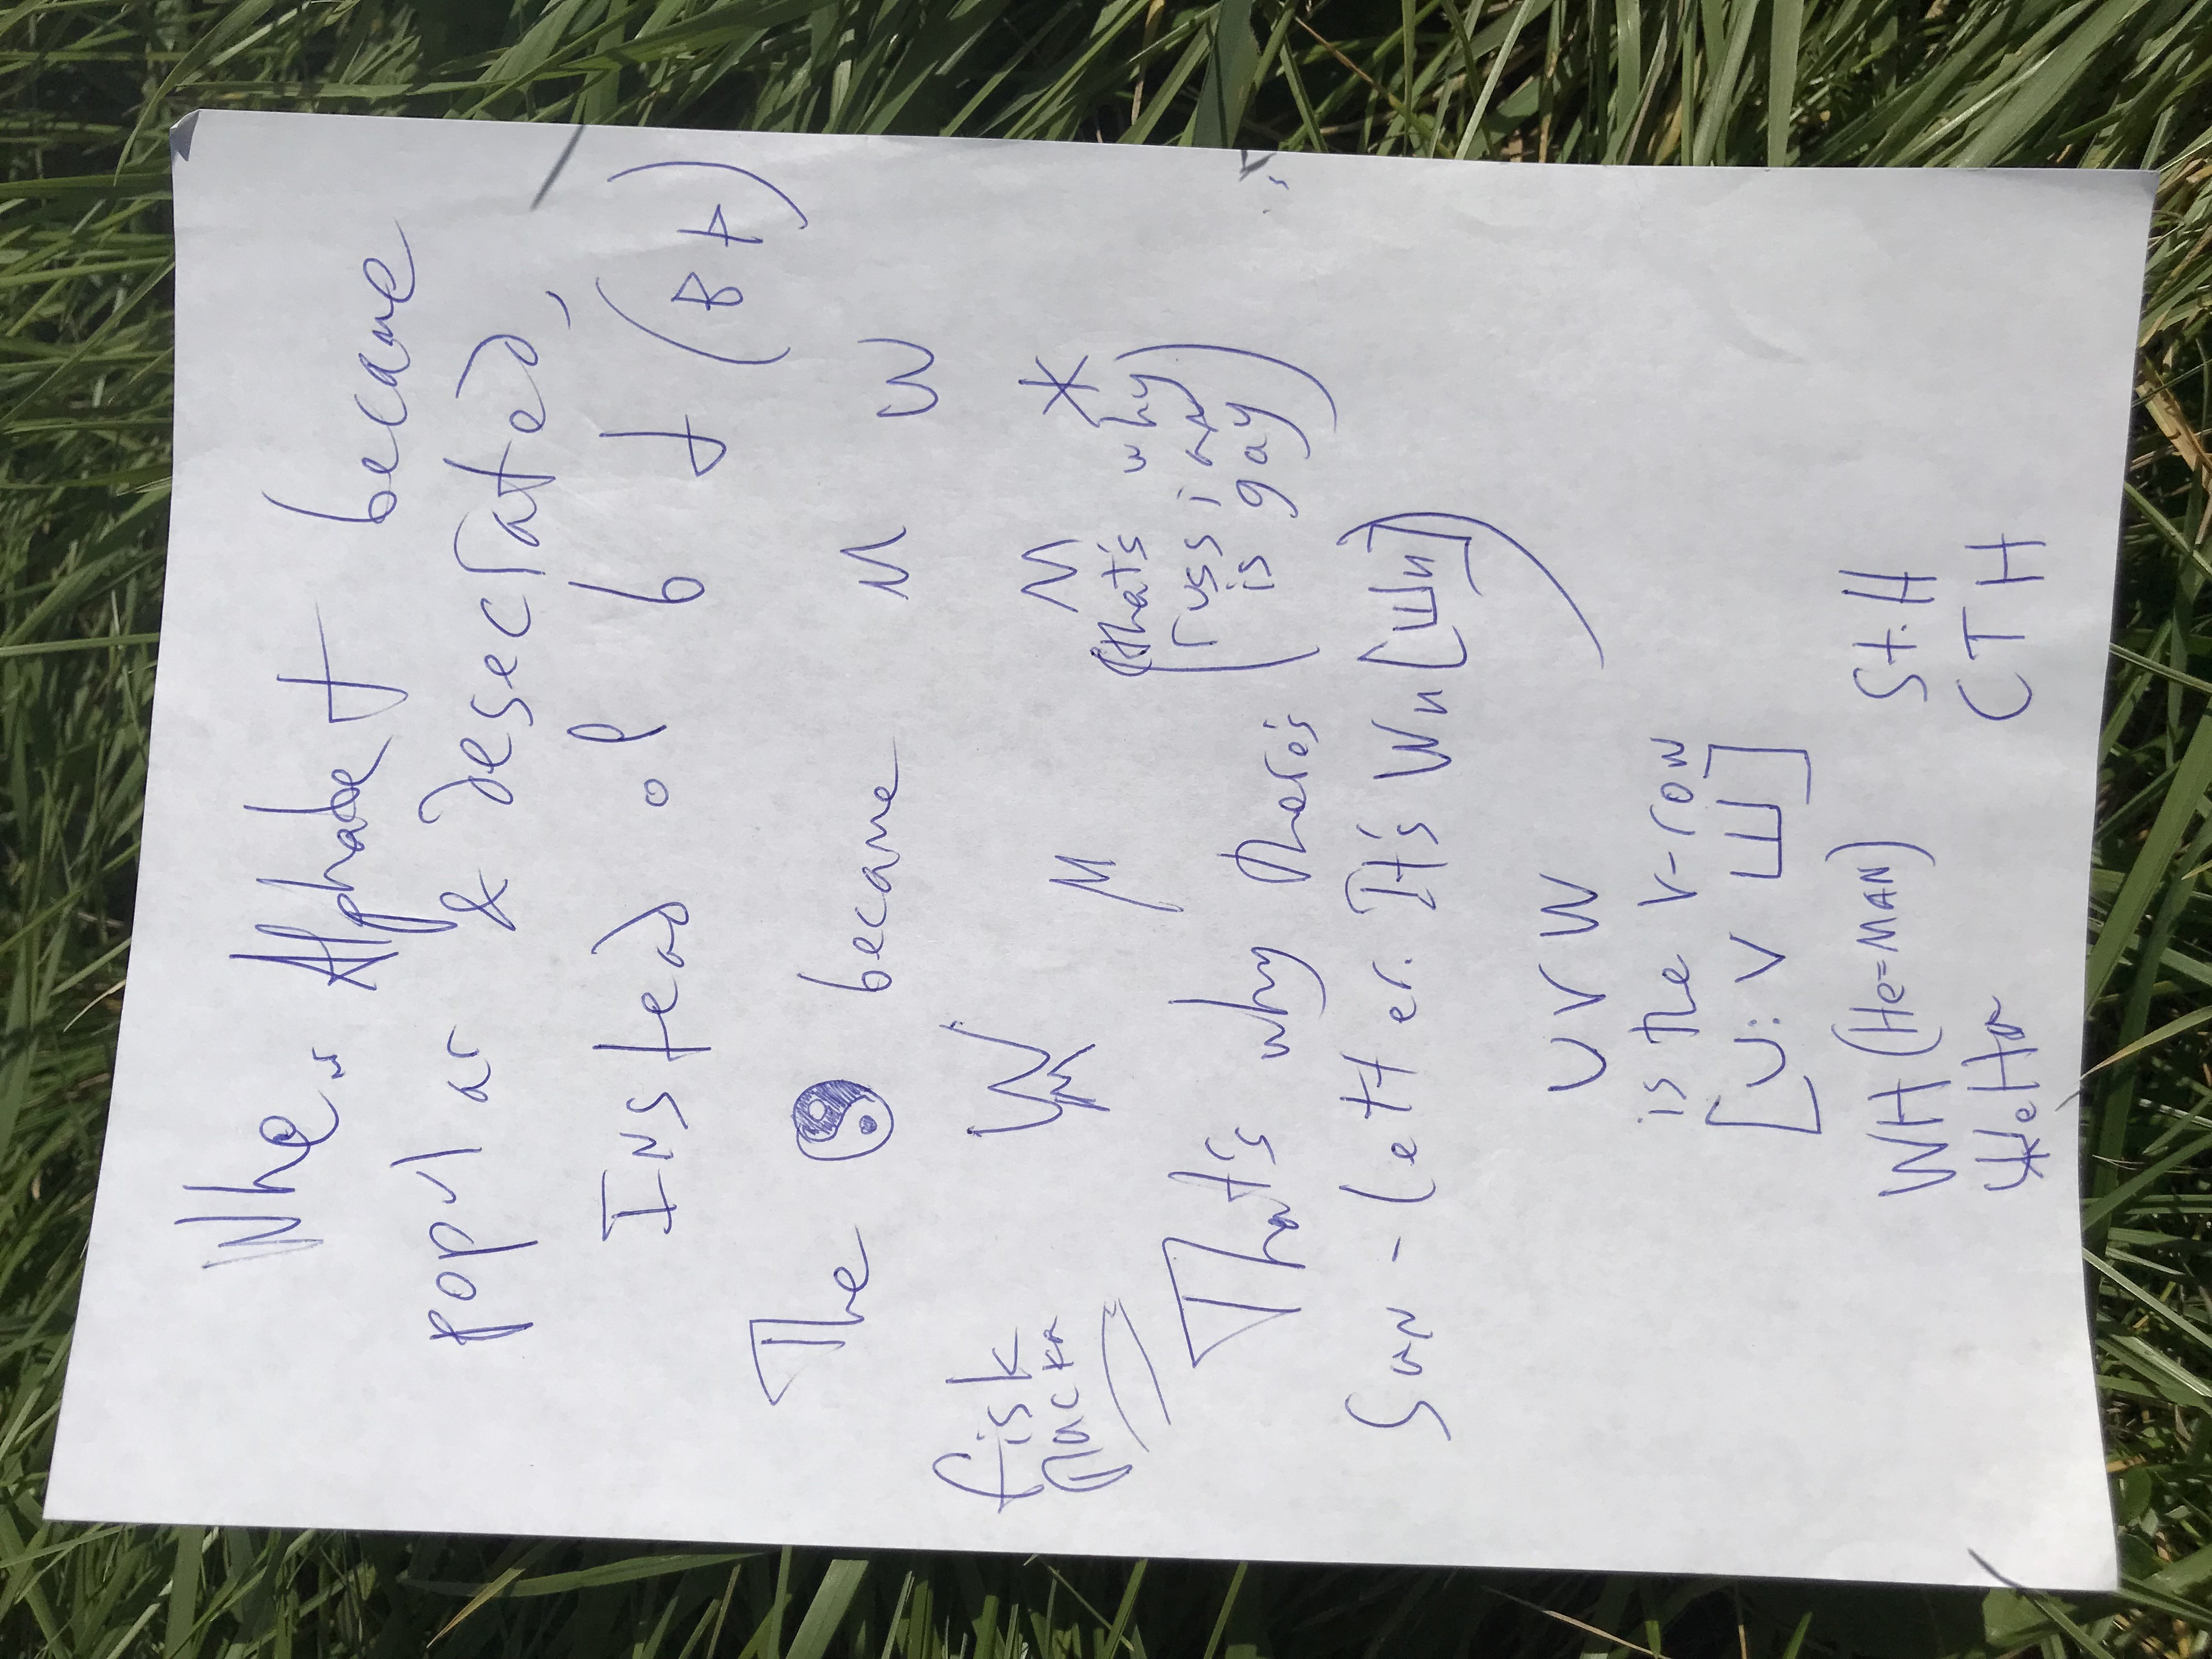 When Alphabet became
popular & desecrated,
Instead of b d (B
The ☯ became M W
fisk
паска
W
M
M
M Ж
(that's why
russian
is gay)
That's why there's
San-letter. It's Wn [Шn])
U V W
is the V-row
[U: V Ш]
WH (He=MAN) St. H
ЖеHa СТН